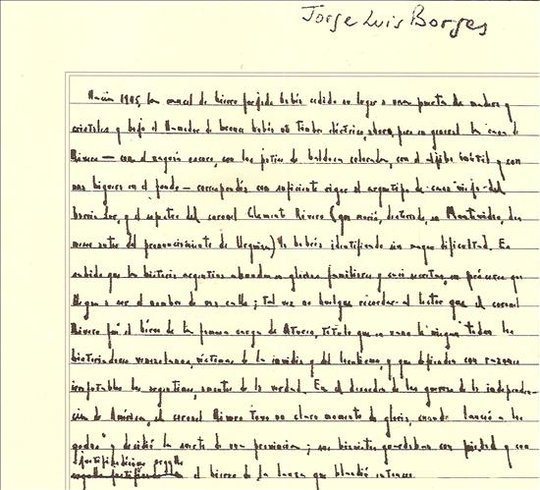 Jorge Luis Borges
Hacia 1905, la cancel de hierro forjado había cedido su lugar a una puerta de madera y
cristales y bajo el llamador de bronce había un timbre eléctrico, ahora, pero en general la casa de
Rivero — con el zaguán escaso, con los patios de baldosa colorada, con el aljibe inútil y con
una higuera en el fondo — correspondía con suficiente rigor al arquetipo de casa vieja del
barrio sur, y el espectro del coronel Clement Rivero (que murió, desterrado, en Montevideo, diez
meses antes del pronunciamiento de Urquiza) la habría identificado sin mayor dificultad. Es
sabido que la historia argentina abunda en glorias familiares y casi secretas, en próceres que
llegan a ser el nombre de una calle; tal vez no huelgue recordar al lector que el coronel
Rivero fué el héroe de la primera carga de Aturco, título que en vano le niegan todos los
historiadores venezolanos, víctimas de la envidia y del localismo, y que defienden con razones
irrefutables los argentinos, amantes de la verdad. En el discurso de las guerras de la independen-
cia de América, el coronel Rivero tuvo un claro momento de gloria, cuando lanzó a los
godos y decidió la suerte de una provincia; sus bisnietos guardaban con piedad y con
orgullo
el hierro de la lanza que blandió entonces.